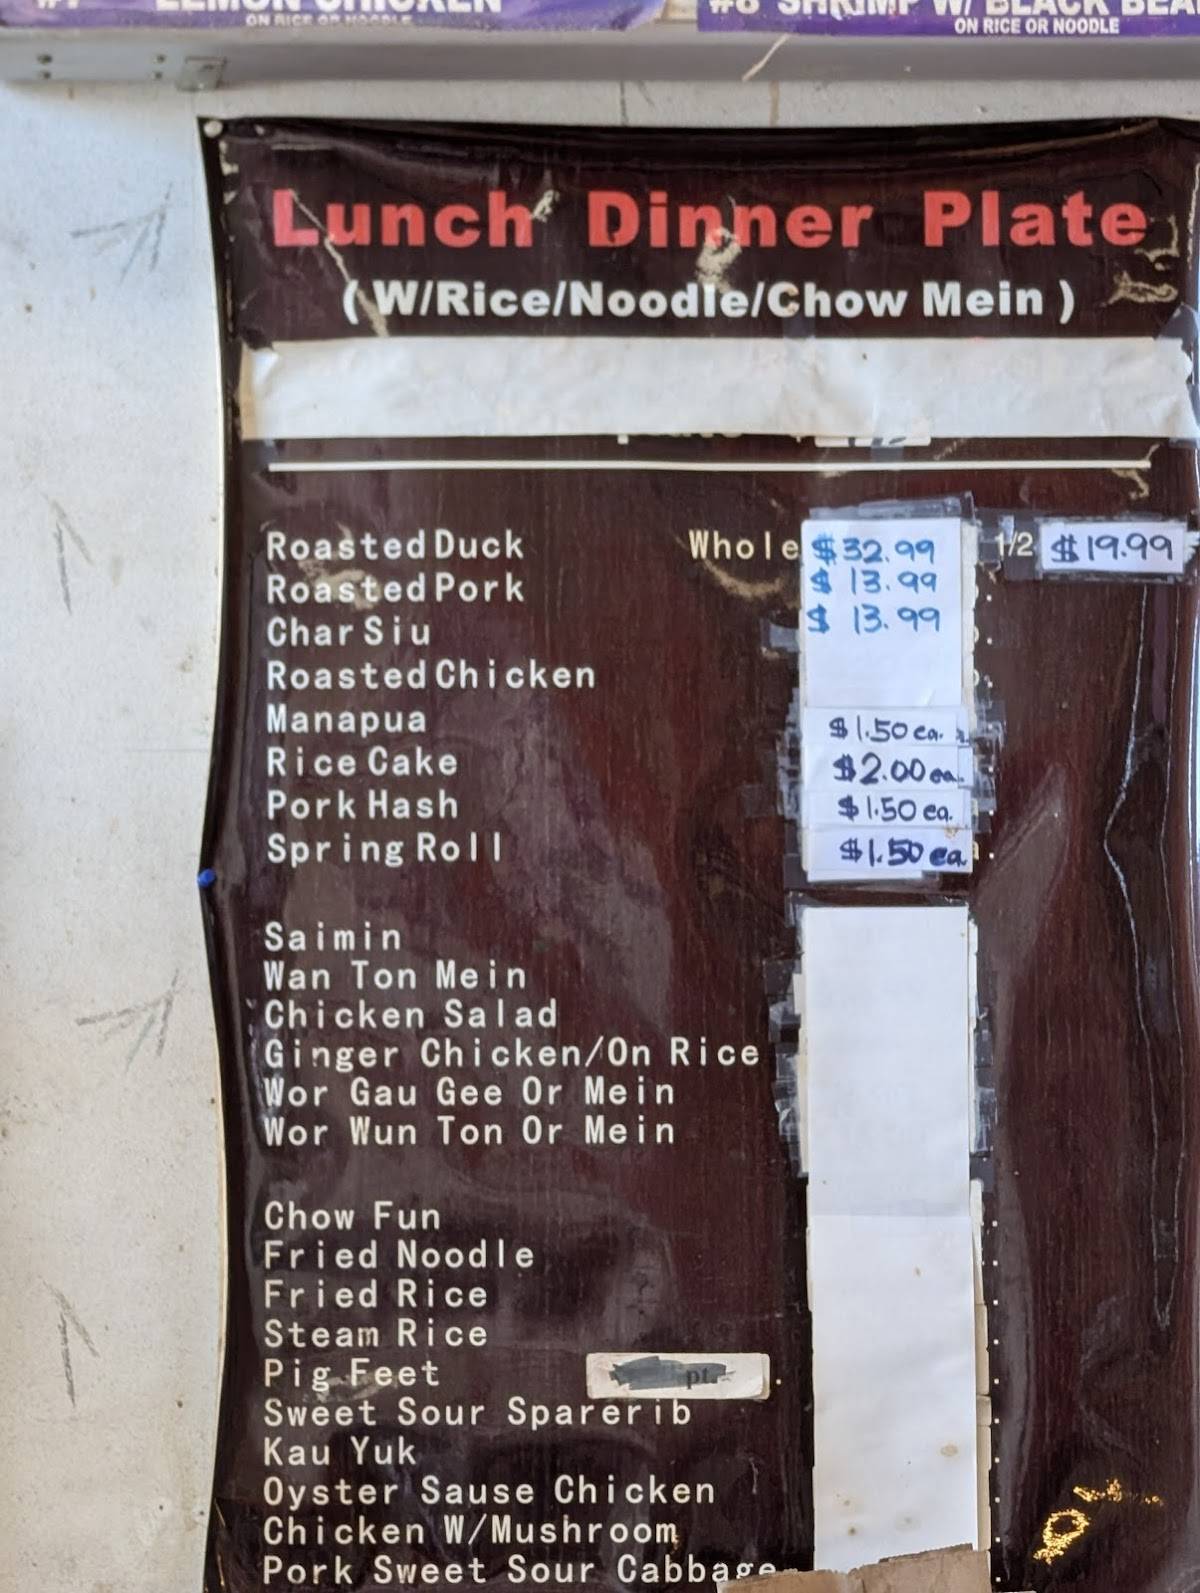 ON RICE OR NOODLE
ON RICE OR NOODLE
Lunch Dinner Plate
( W/Rice/Noodle/Chow Mein )
Roasted Duck Whole $32.99 1/2 $19.99
Roasted Pork $13.99
Char Siu $13.99
Roasted Chicken
Manapua $1.50 ea.
Rice Cake $2.00 ea.
Pork Hash $1.50 ea.
Spring Roll $1.50 ea
Saimin
Wan Ton Mein
Chicken Salad
Ginger Chicken/On Rice
Wor Gau Gee Or Mein
Wor Wun Ton Or Mein
Chow Fun
Fried Noodle
Fried Rice
Steam Rice
Pig Feet pt.
Sweet Sour Sparerib
Kau Yuk
Oyster Sause Chicken
Chicken W/Mushroom
Pork Sweet Sour Cabbage